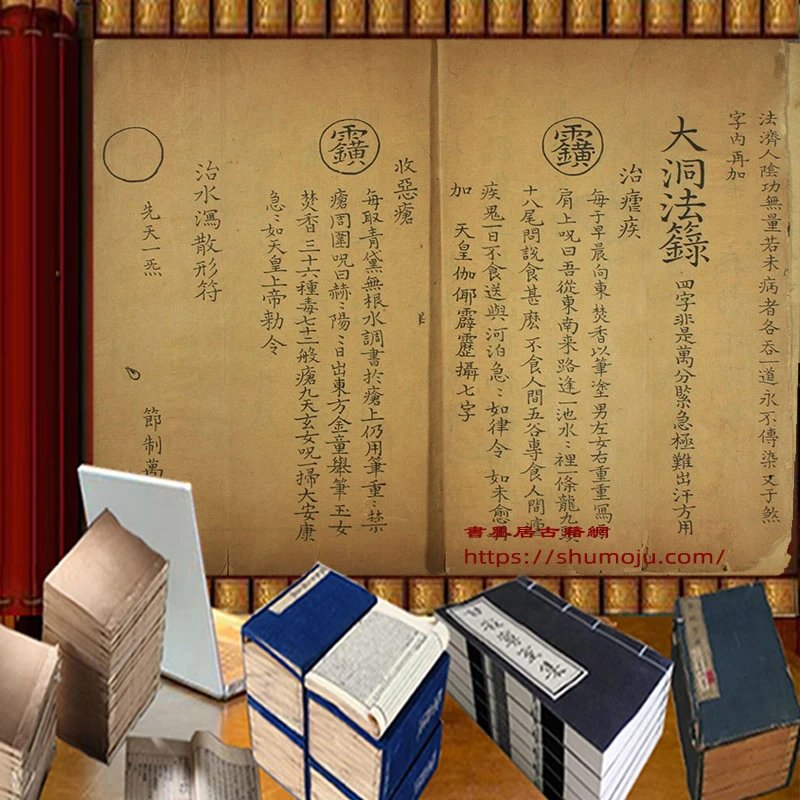 法濟人陰功無量若未病者各吞一道永不傳染又于煞
字內再加
大洞法籙 四字非是萬分緊急極難出汗方用
治瘧疾
每于早晨向東焚香以筆塗男左女右重重寫
肩上呪曰吾從東南来路逢一池水〻裡一條龍九頭
十八尾問說食甚麽不食人間五谷專食人間瘧
疾鬼一日不食送與河泊急〻如律令 如未愈
加 天皇伽㑘霹靂攝七字
收惡瘡
每取青黛無根水調書於瘡上仍用筆重〻禁
瘡周圍呪曰赫〻陽〻日出東方金童舉筆玉女
焚香三十六種毒七十二般瘡九天玄女呪一掃大安康
急〻如天皇上帝勅令
治水瀉散形符
先天一炁
節制萬
書墨居古籍網
https://shumoju.com/